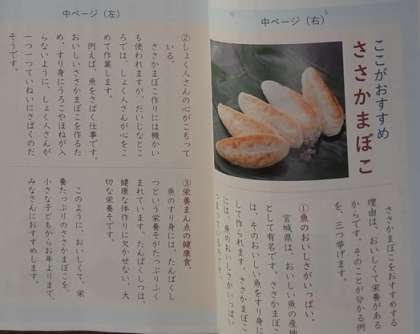 中ページ（右）
ここがおすすめ
ささかまぼこ
ささかまぼこをおすすめする
理由は、おいしくて栄養がある
からです。そのことが分かる例
を、三つ挙げます。
①魚のおいしさがいっぱい。
宮城県は、おいしい魚の産地
として有名です。ささかまぼこ
は、そのおいしい魚をすり身に
して作られます。ささかまぼこ
には、魚のおいしさがいっぱい
中ページ（左）
②しょく人さんの心がこもって
いる。
ささかまぼこ作りには機かい
も使われますが、だいじなとこ
ろでは、しょく人さんが心をこ
めて作業します。
例えば、魚をさばく仕事です。
おいしいささかまぼこを作るた
め、すり身にうろこやほねが入
らないように、しょく人さんが
一つ一つていねいにさばくのだ
そうです。
③栄養まん点の健康食。
魚のすり身には、たんぱくし
つという栄養そがたっぷりふく
まれています。たんぱくしつは、
健康な体作りに欠かせない、大
切な栄養そです。
このように、おいしくて、栄
養たっぷりのささかまぼこを、
小さな子どもからお年よりまで、
みなさんにおすすめします。